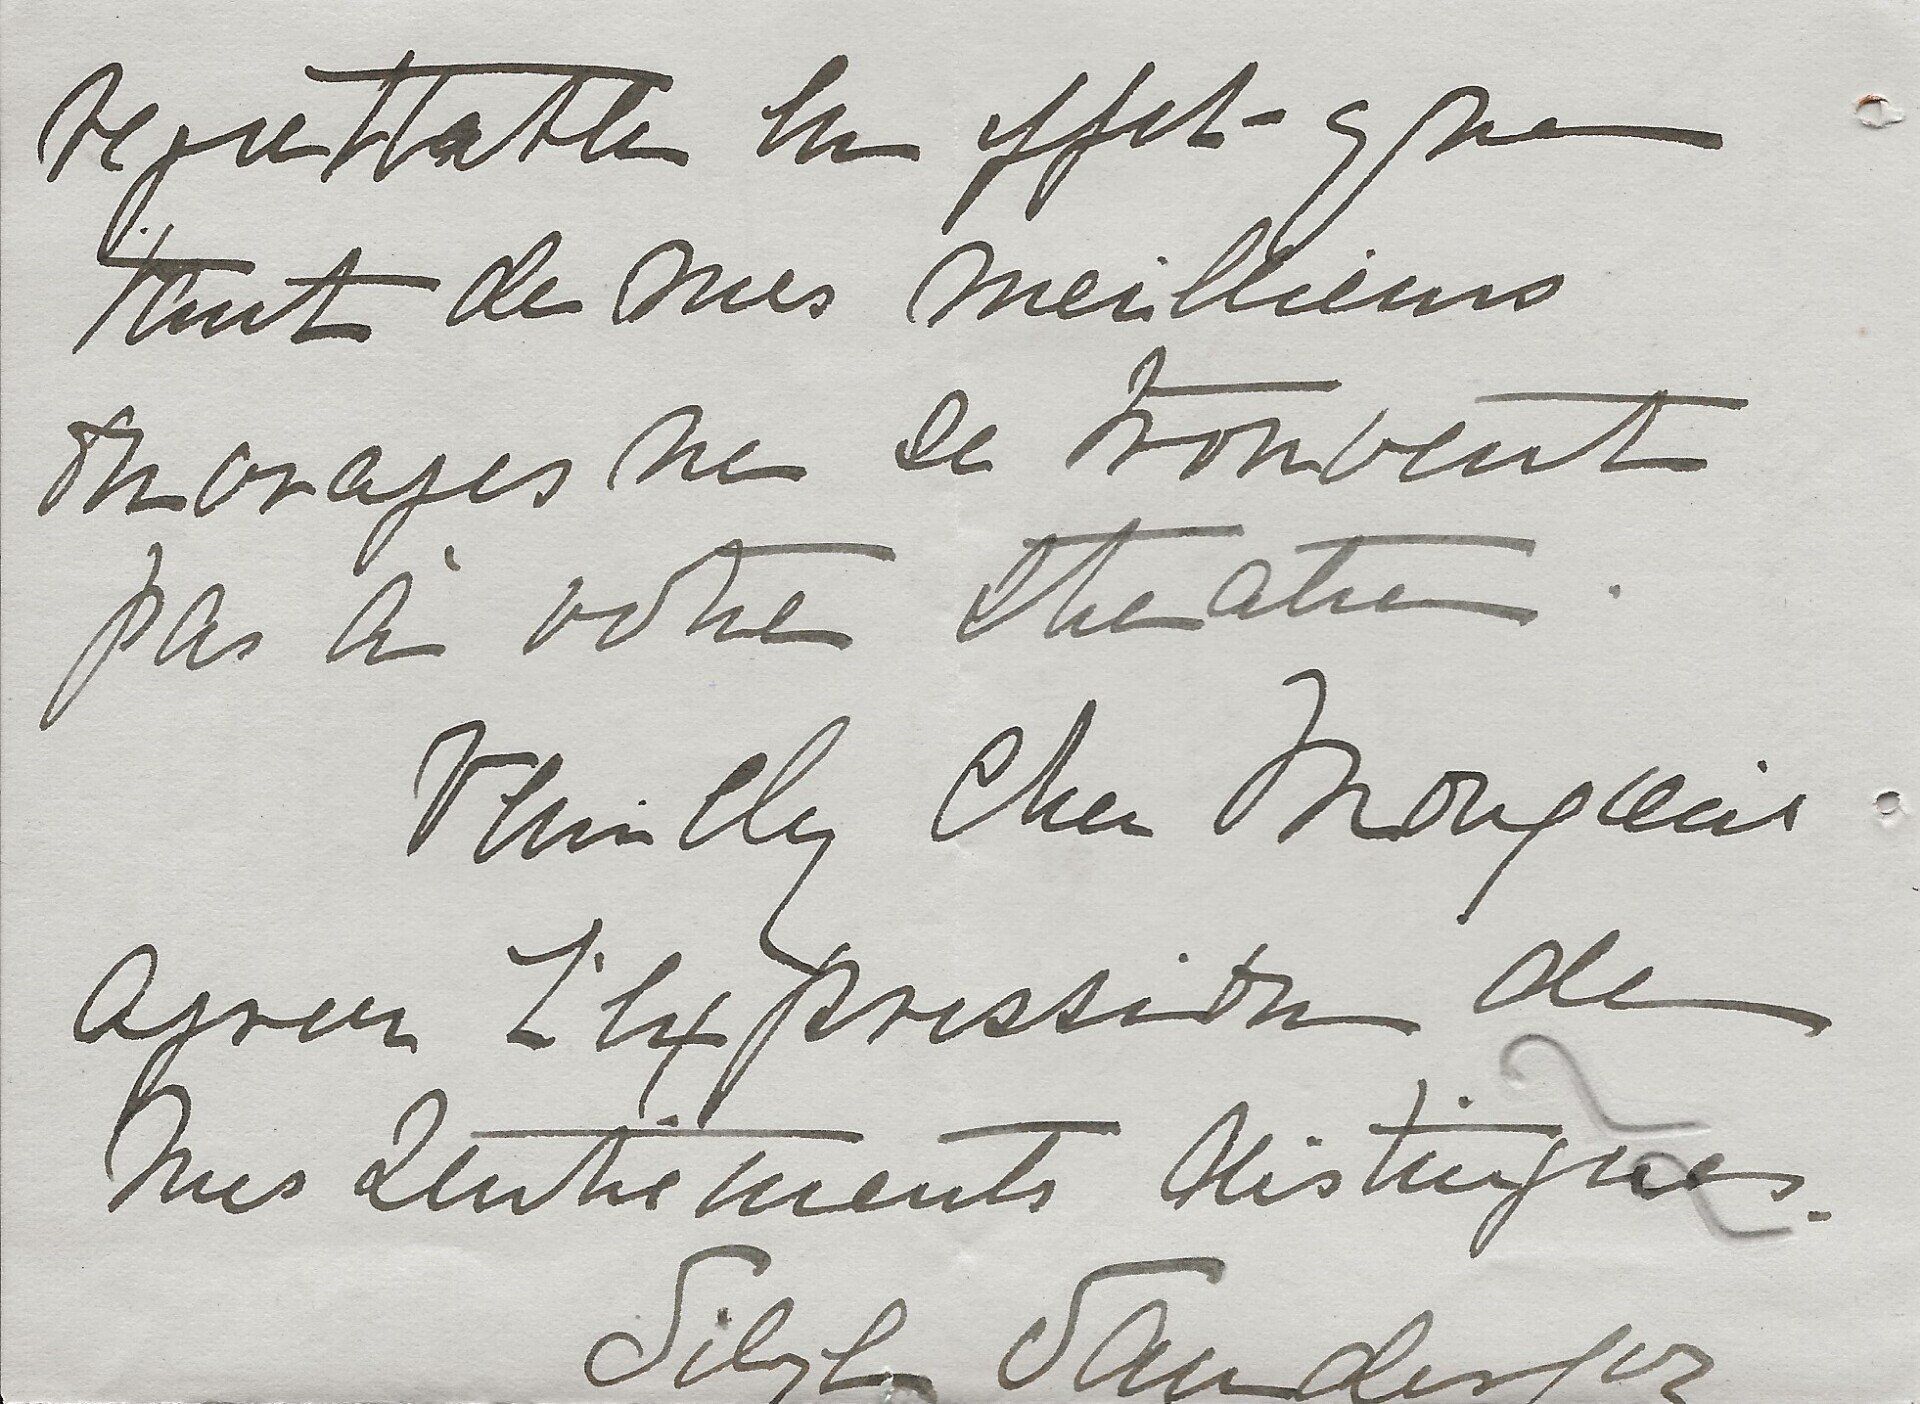 regrettable en effet que
tant de mes meilleurs
ouvrages ne se trouvent
pas à votre theatre.
Veuillez cher Monsieur
agreer l'expression de
mes sentiments distingues.
Sibyl Sanderson